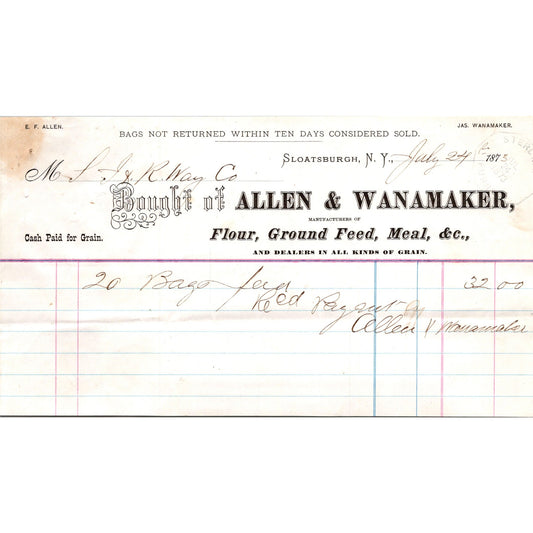 E. F. ALLEN.
JAS. WANAMAKER.
BAGS NOT RETURNED WITHIN TEN DAYS CONSIDERED SOLD.
SLOATSBURGH, N. Y., July 24 1873
M S. I & R. Way Co
Bought of ALLEN & WANAMAKER,
MANUFACTURERS OF
Cash Paid for Grain.
Flour, Ground Feed, Meal, &c.,
AND DEALERS IN ALL KINDS OF GRAIN.
20 Bags feed 32 00
Recd Payment by
Allen & Wanamaker